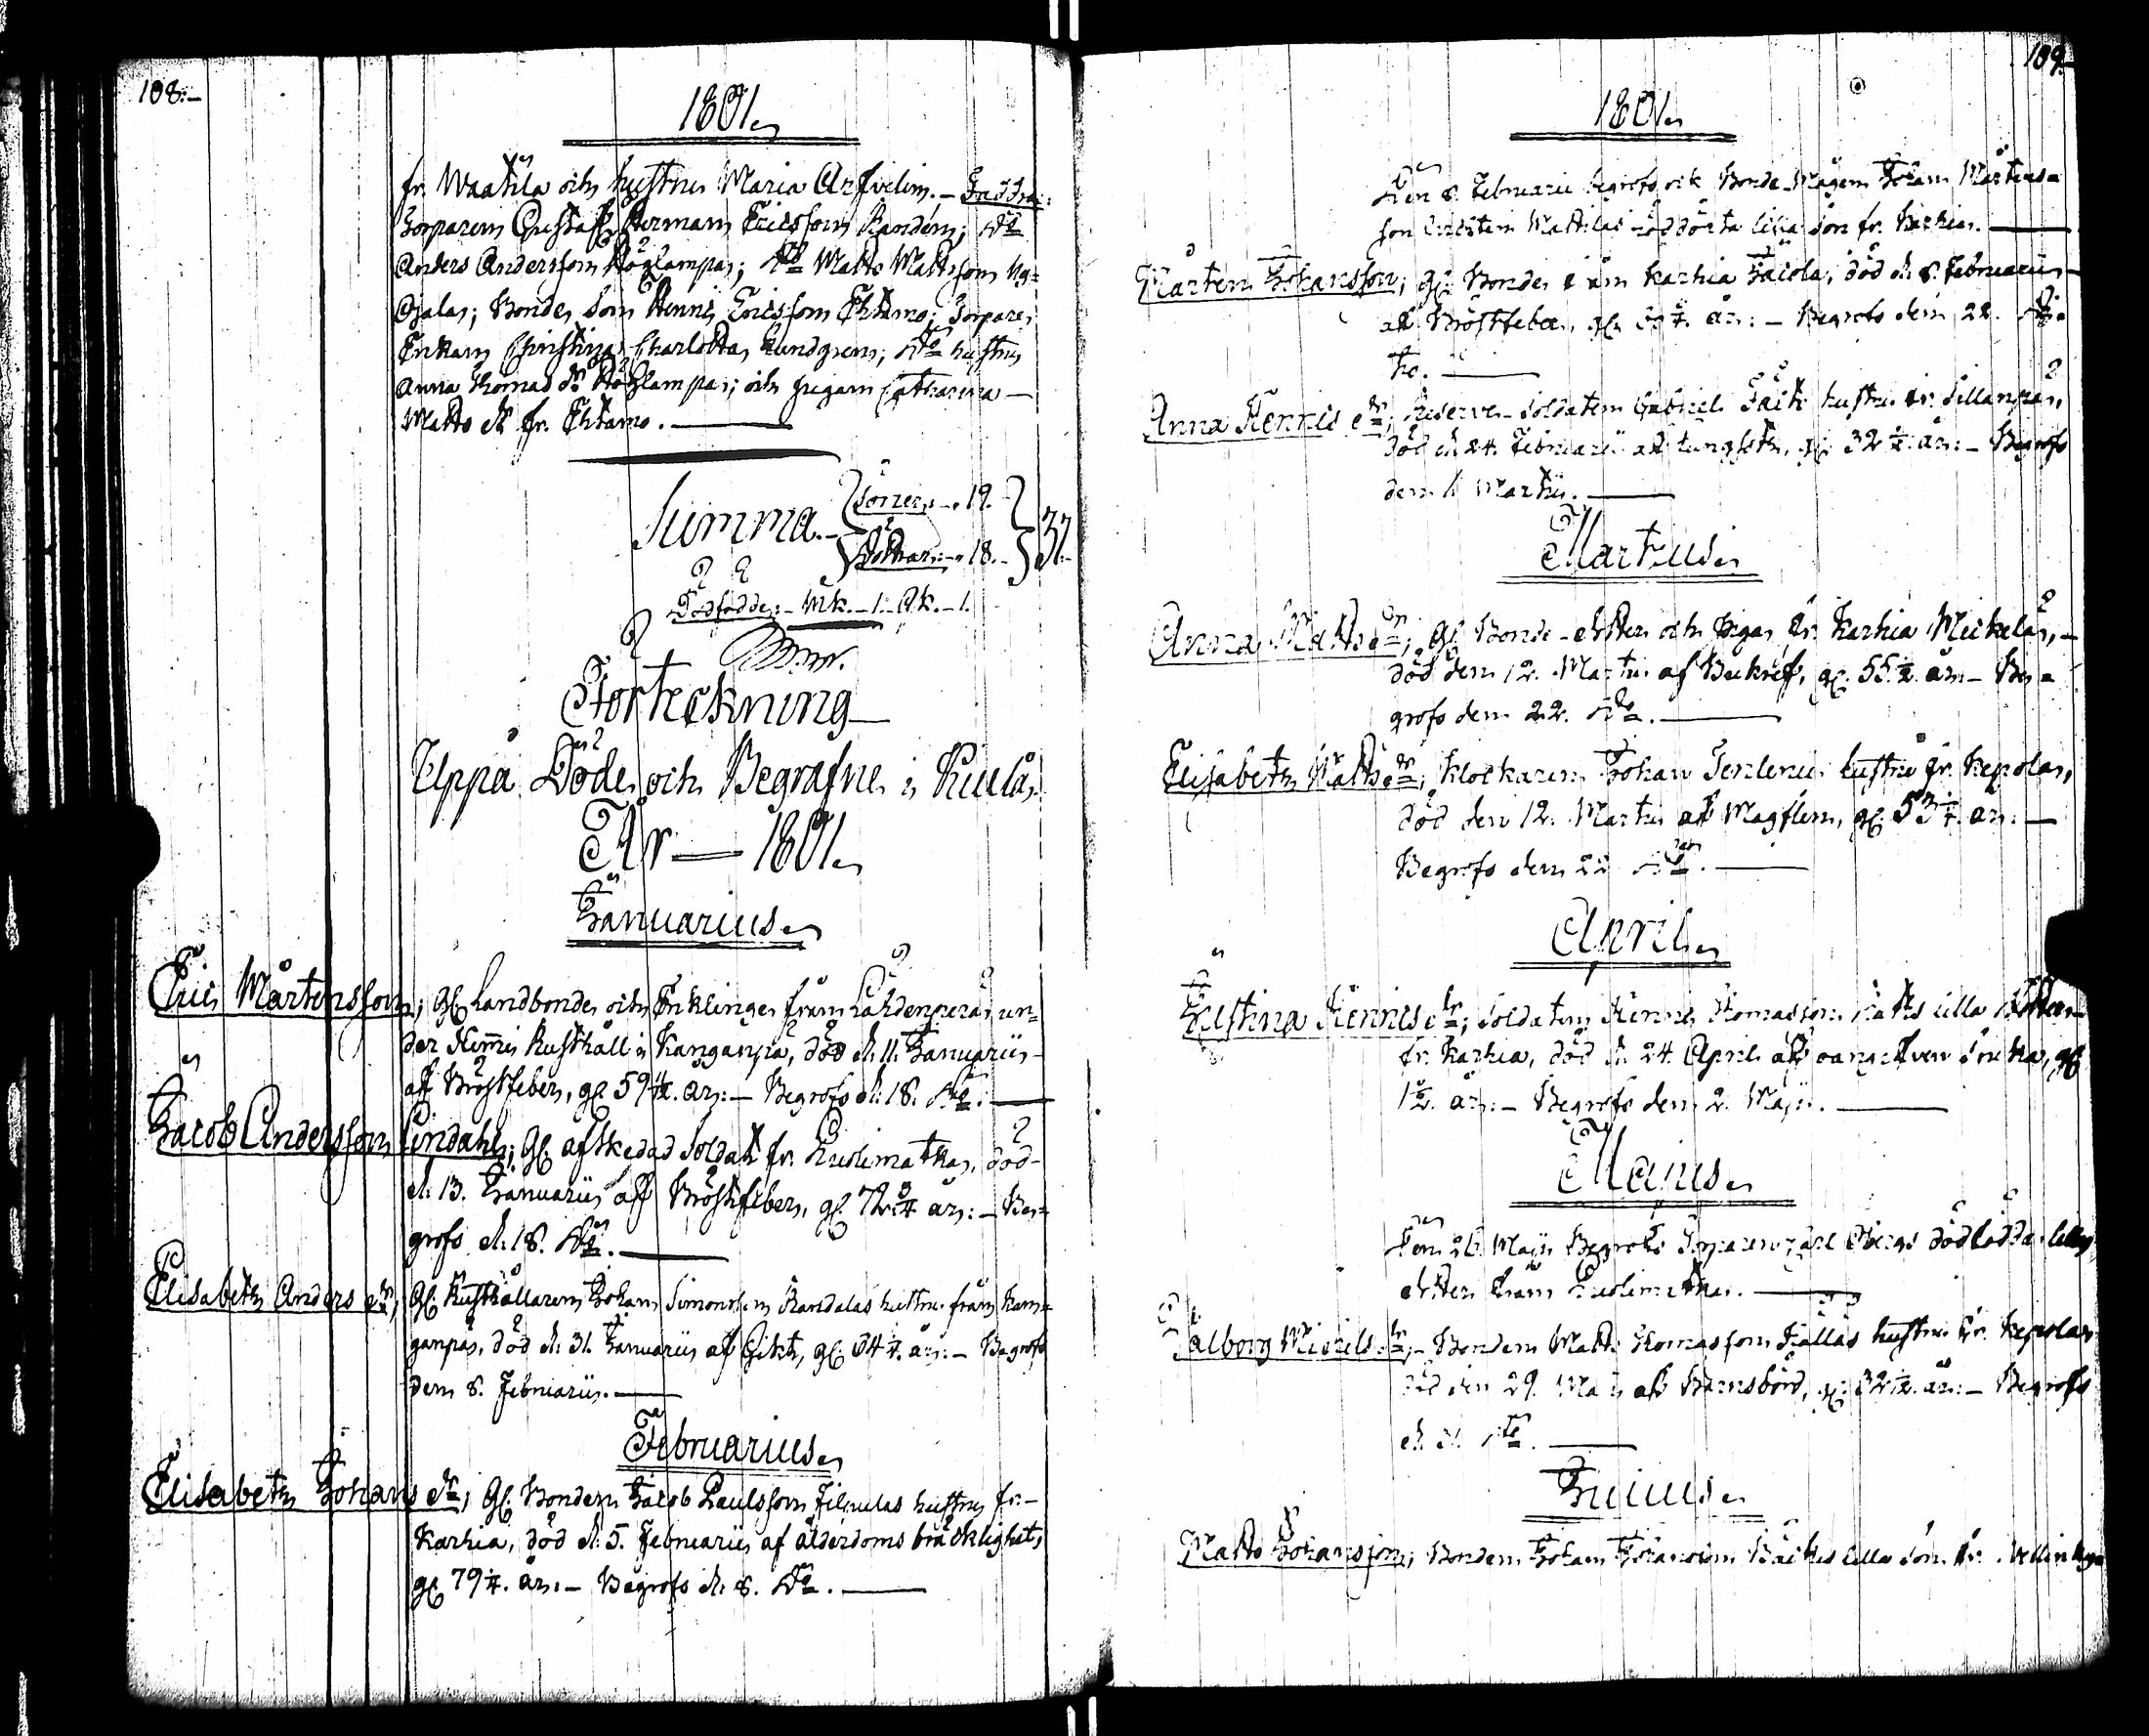 108.-
1801.
fr. Waatila och hustru Maria Arfvelin. - Faddrar:
Torparen Gustaf Herman Ericsson Randén; Do
Anders Andersson Röglampas; Do Matts Mattsson
Ojalas; Bonde Son Hennis Ericsson Ehtamo; Torpare
Enkan Christina Charlotta Lundgren; Do hustru
Anna Thomas dr Röglampas; och pigan Catharina
Matts dr fr. Ehtamo.
Summa. - Söner: - 19.
Döttrar: - 18. - 37.-
Dödfödde: - Mk. - 1. Qk. - 1.
Förteckning
Uppå Döde och Begrafne i Kiula
År 1801.
Januarius.
Eric Mårtensson; Gl Landbonde och Enklinge från Lähdenperä, un=
der Hennis Rusthåll i Kanganpä, död d. 11. Januarii
af Bröstfeber, gl. 59 år: - Begrofs d. 18. Do.
Jacob Andersson Lindahl; Gl. afskedad Soldat fr. Kuolimatka, död
d. 13. Januarii af Bröstfeber, gl. 72 3/4 år: - Be=
grofs d. 18. Do.
Elisabeth Anders dr; Gl. Rusthållaren Johan Simonsson Randalas hustru från Kan=
ganpä, död d. 31. Januarii af Gikt, gl. 64 1/4 år: - Begrofs
den 8. Februarii.
Februarius.
Elisabeth Johans dr; Gl. Bonden Jacob Paulsson hustru fr.
Karhia, död d. 5. Februarii af ålderdoms bräcklighet,
gl 79 1/4. år: - Begrofs d. 8. Do.
109.-
1801.
Den 8. Februarii begrofs ock Bonde-Mågen Johan Mårtens=
son Mattilas dödfödda lilla son fr. Karhia.
Mårten Johansson; gl. Bonde från Karhia Jacola, död d. 8. Februarii
af Bröstfeber, gl. år: - Begrofs den 22. Di=
to.
Anna Hennis dr; Reserve-Soldaten Gabriel hustru fr. Sillanpä,
död d. 24. Februarii af lungsot, gl. 32 1/2 år: - Begrofs
den 1. Martii.
Martius.
Anna Matts dr; Gl. Bonde-dotter och Piga fr. Karhia Mickelä,
död den 12. Martii af Bukref, gl. 55 1/2 år - Be=
grofs den 22. Do.
Elisabeth Matts dr; Klockaren Johan Tenlenius hustru fr. Kepola,
död den 12. Martii af Magflen, gl. 53 1/4. år: -
Begrofs den 22 Do.
April.
Justina Hennis dr; Soldaten Hennis Thomasson lilla dotter
fr. Karhia, död d. 24. April af oangifven sjuka, gl
1 1/2. år: - Begrofs den 2. Maji.
Majus.
Den 26. Maji Begrofs Torparen Carl Öbergs dödfödda lilla
dotter från Kuolimatka.
Valborg Michels dr; Bonden Matts Thomasson Källas hustru fr. Kepola,
död den 29. Maji af Barnsbörd, gl. 32 1/2. år: - Begrofs
d. 31. Do.
Junius.
Matts Johansson; Bonden Johan Johansson lilla son fr.